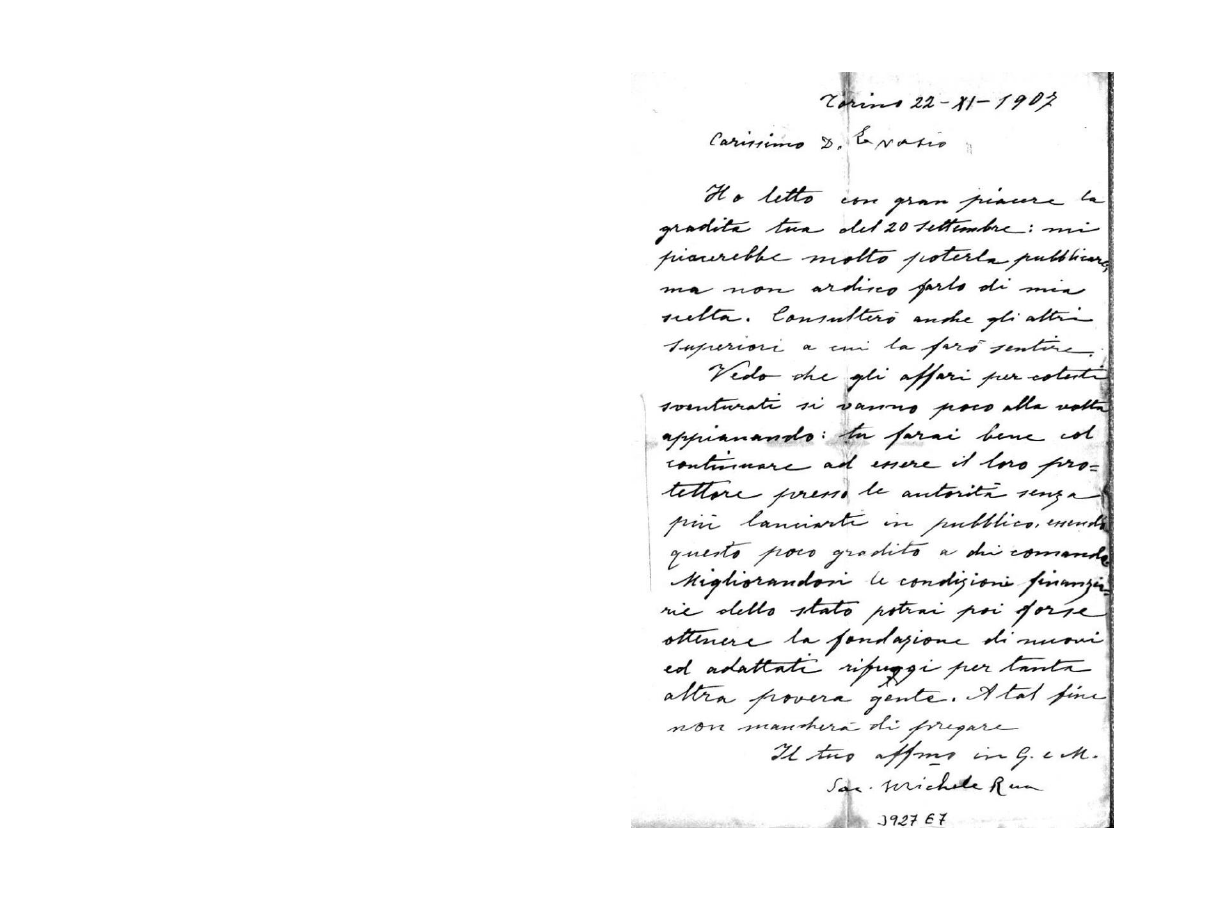 Torino 22-XI-1907
Carissimo D. Evasio
Ho letto con gran piacere la
gradita tua del 20 Settembre: mi
piacerebbe molto poterla pubblicare,
ma non ardisco farlo di mia
scelta. Consulterò anche gli altri
Superiori a cui la farò sentire.
Vedo che gli affari per cotesti
sventurati si vanno poco alla volta
appianando: tu farai bene col
continuare ad essere il loro pro=
tettore presso le autorità senza
più lanciarti in pubblico, essendo
questo poco gradito a chi comanda
Migliorandosi le condizioni finanzia=
rie dello stato potrai poi forse
ottenere la fondazione di nuovi
ed adattati rifuggi per tanta
altra povera gente. A tal fine
non mancherà di pregare
Il tuo affmo in G. e M.
Sac. Michele Rua
3927 E7